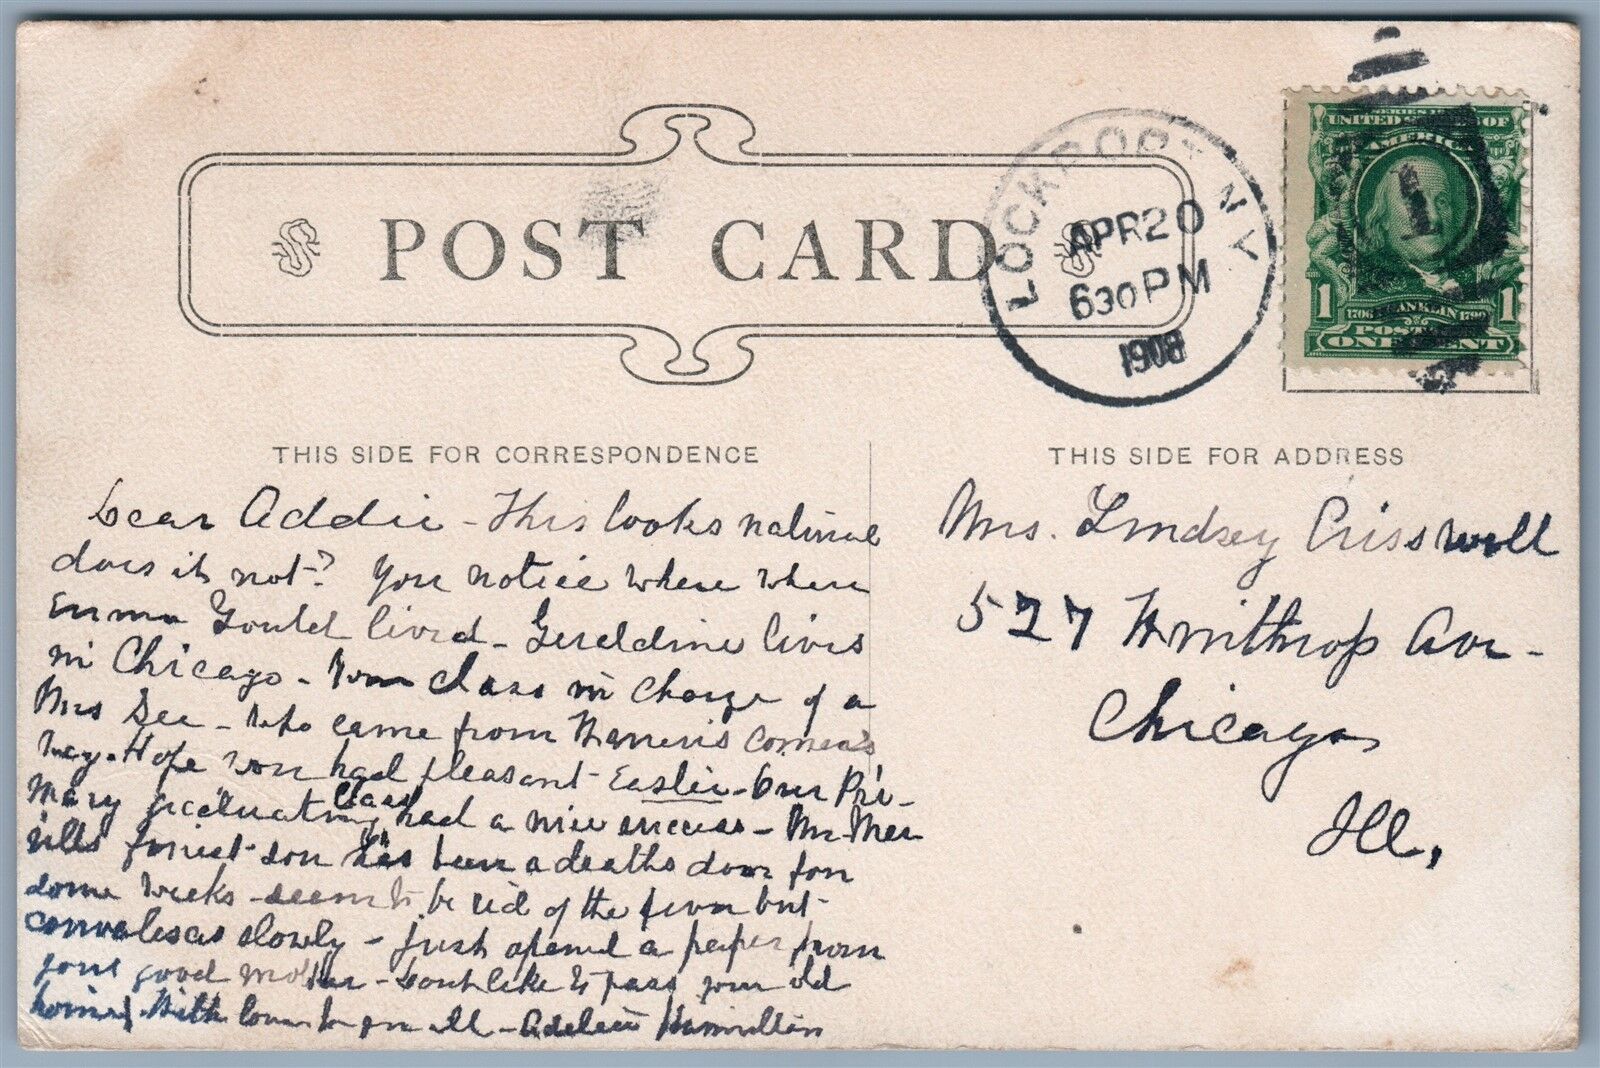 POST CARD
LOCKPORT N.Y.
APR 20
630 PM
1908
SERIES 1902
UNITED STATES OF
AMERICA
1
1706 FRANKLIN 1790
POSTAGE
1 ONE CENT 1
THIS SIDE FOR CORRESPONDENCE
Dear Addie - This looks natural
does it not? You notice where where
Emma Gould lived - Geraldine lives
in Chicago - class in charge of a
Mrs Dee - who came from
way. Hope you had pleasant Easter - Our Pri-
mary graduating class had a nice success - Mr. Mer
rills son has been a deaths door for
some weeks - seems to be rid of the fever but
convalesces slowly - just opened a paper from
your good mother - Dont like to pass your old
home. With love to you all - Adelia Hamilton
THIS SIDE FOR ADDRESS
Mrs. Lindsey Crisswell
527 Winthrop Ave -
Chicago
Ill.